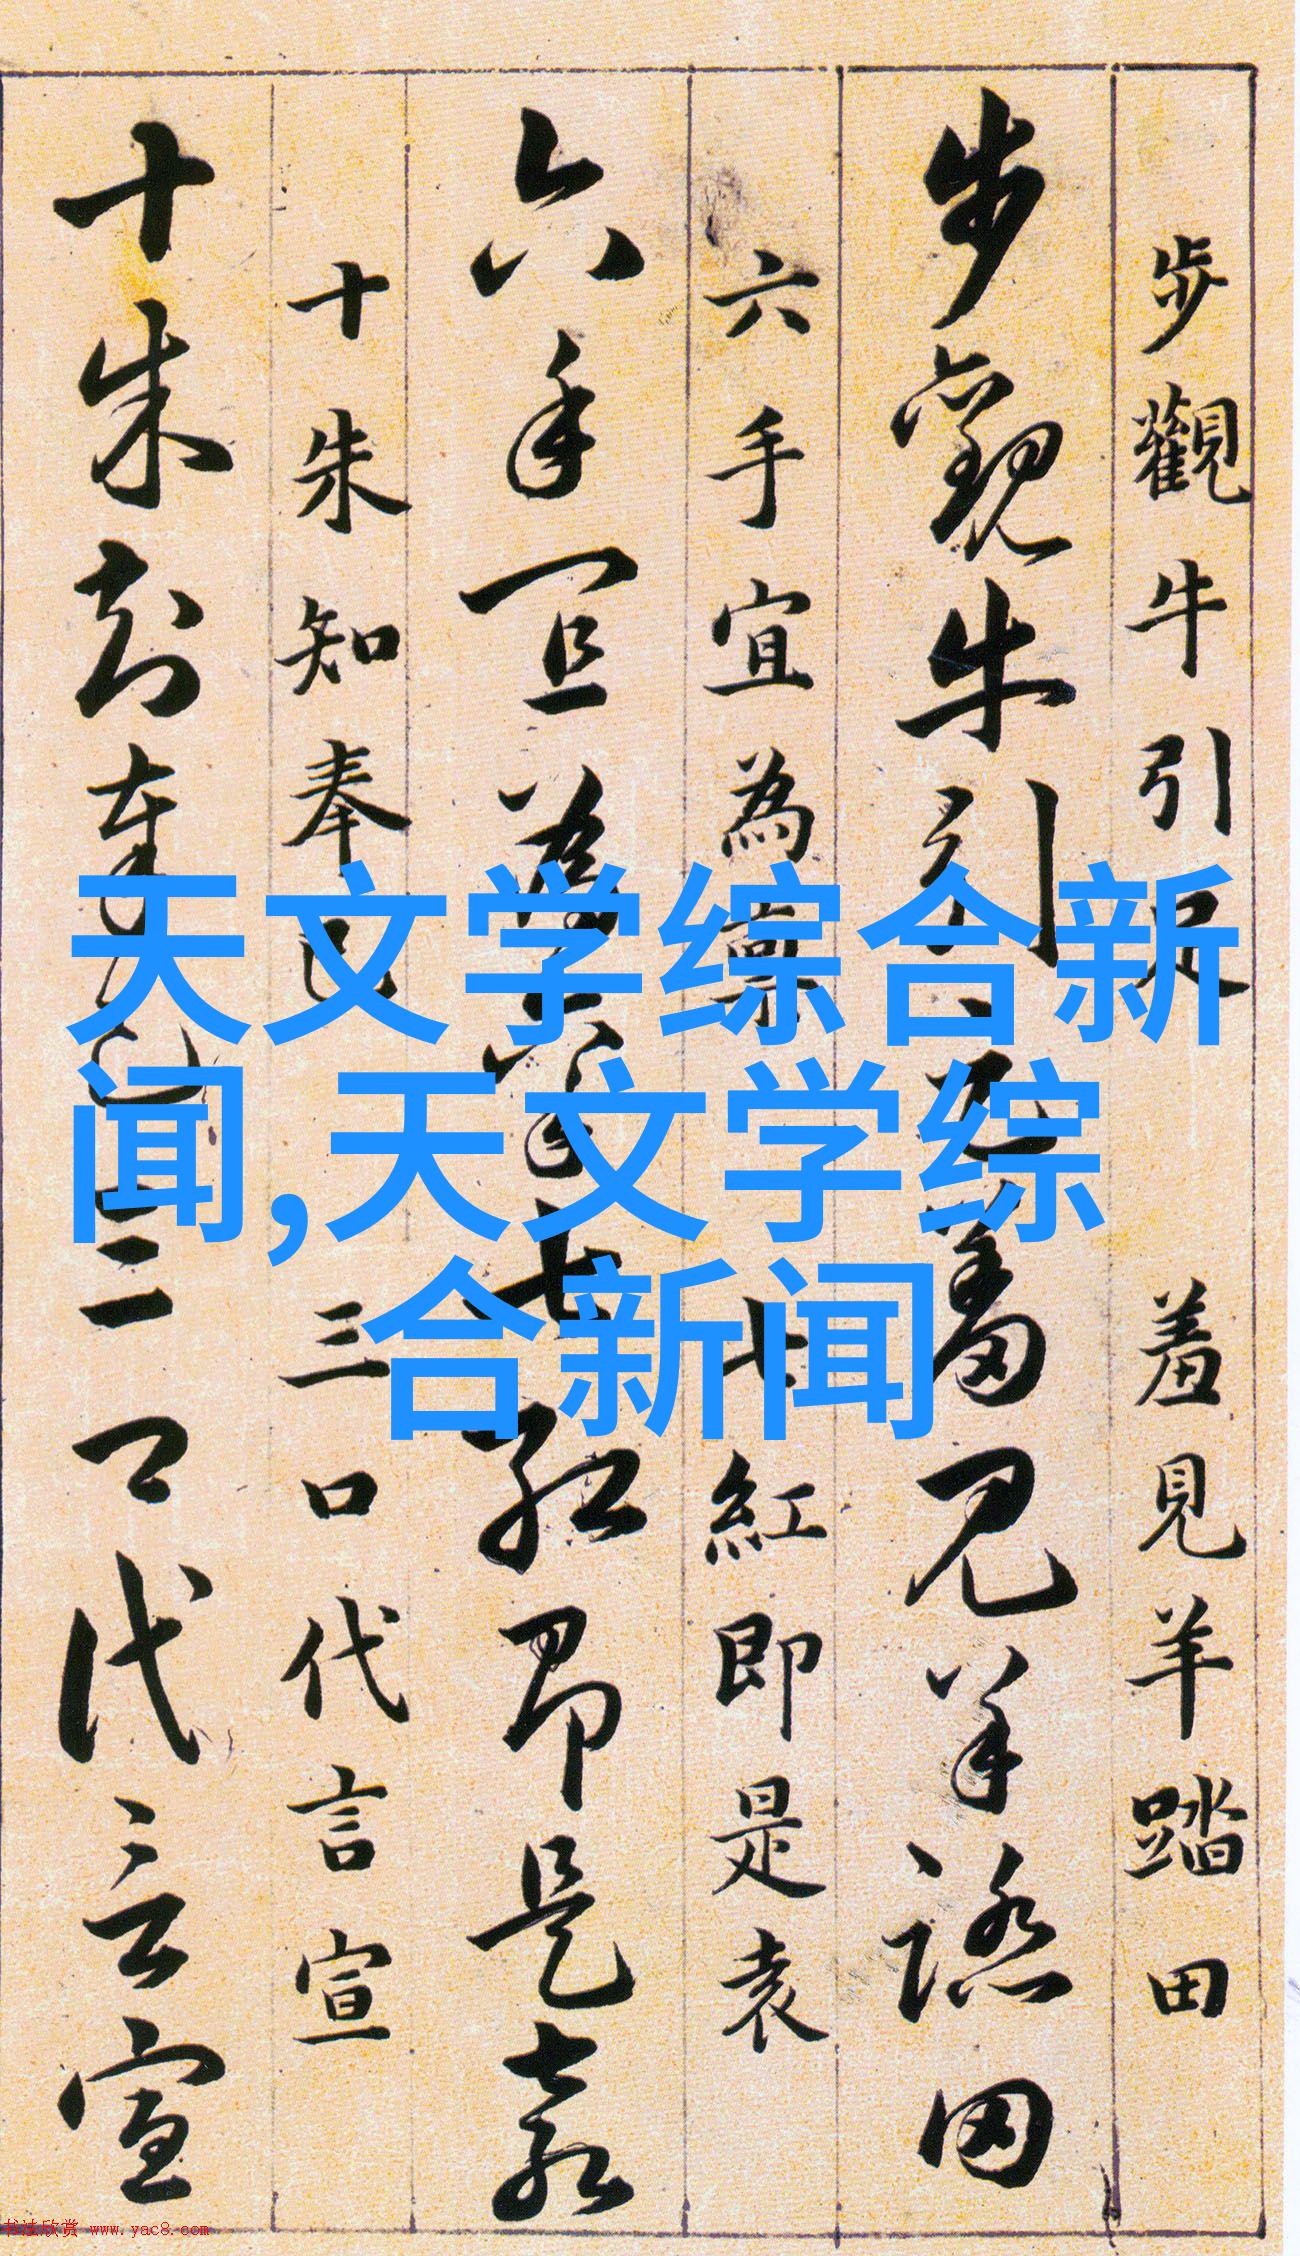 步觀牛引足 羞見羊踏田
步觀牛引足羞見羊踏田
六手宜為稟 七紅即是袁
六手宜為稟七紅即是袁
十朱知奉已 三口代言宣
十朱知奉已三口代言宣
天文学综合新
闻,天文学综
合新闻
书法欣赏 www.yac8.com